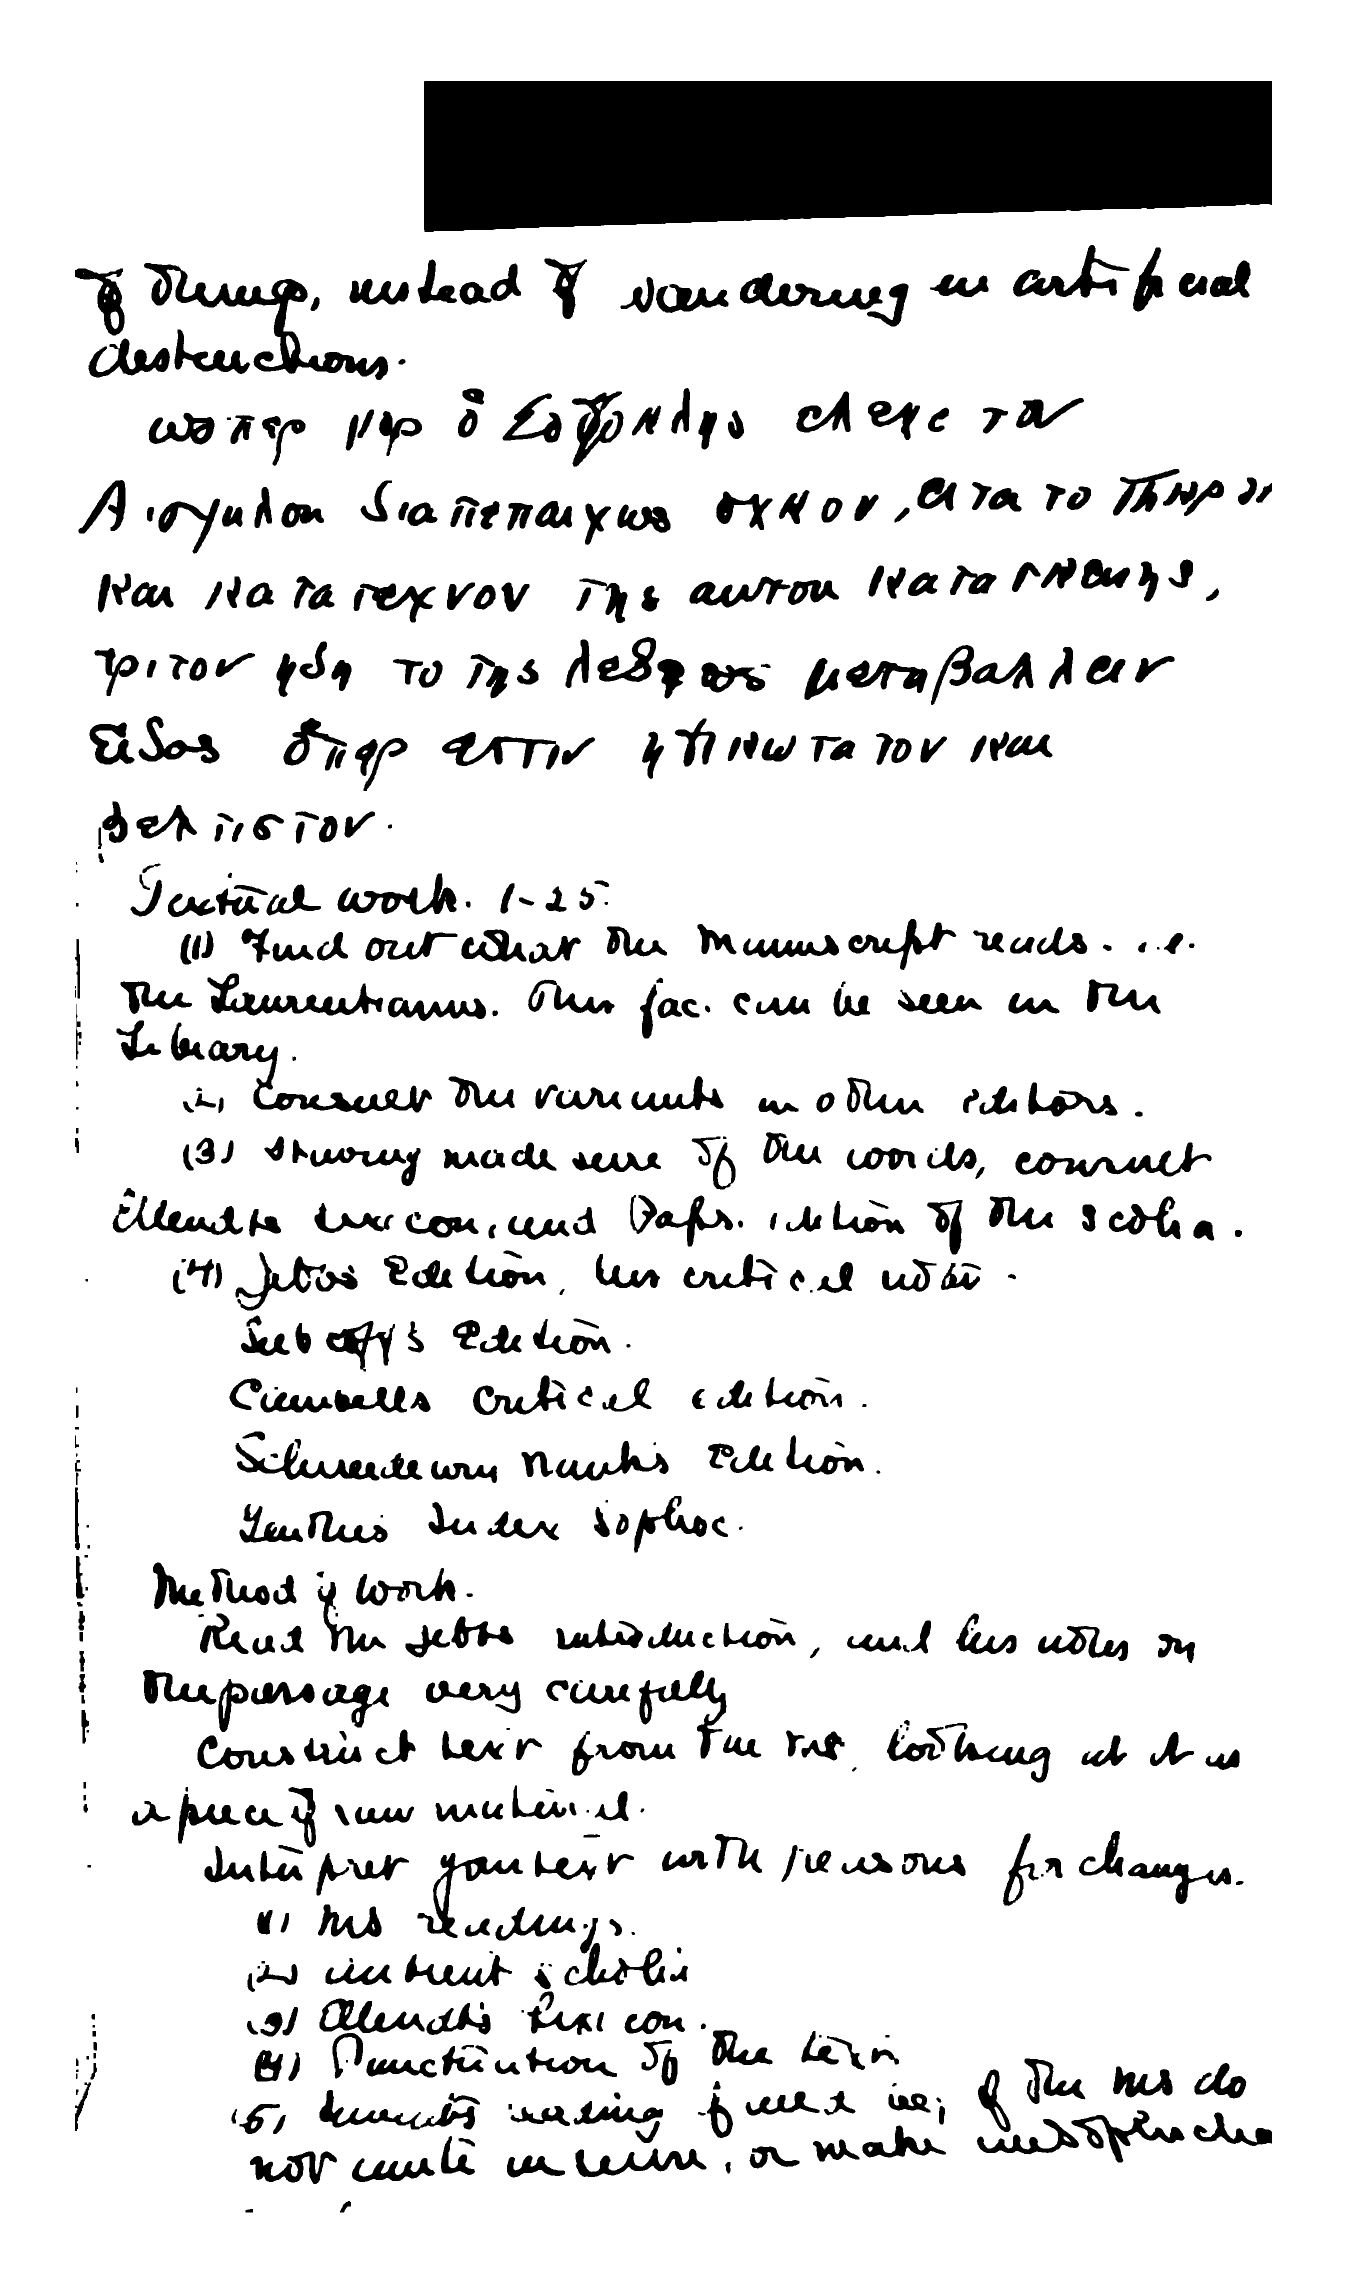 of things, instead of wandering in artificial
destructions.
ωσπερ γαρ ὁ Σοφοκλης ελεγε τον
Αισχυλου διαπεπαιχως ογκον, ειτα το πικρον
και κατατεχνον της αυτου κατασκευης,
τριτον ηδη το της λεξεως μεταβαλλειν
ειδος ὁπερ εστιν ηθικωτατον και
βελτιστον.
Textual work. 1-25.
(1) Find out what the Manuscript reads. i.e.
the Laurentianus. This fac. can be seen in the
Library.
(2) Consult the variants in other editors.
(3) Having made sure of the words, consult
Ellendts Lexicon, and Paps. edition of the Scolia.
(4) Jebbs Edition, his critical notes.
Edition.
Campbells Critical edition.
Schneidewin Naucks Edition.
Index Sophoc.
Method of work.
Read the Jebbs introduction, and his notes on
the passage very carefully
Construct text from the ms, looking at it as
a piece of raw material.
Interpret your text with reasons for changes.
(1) MS readings.
(2) ancient scholia
(3) Ellendts Lexicon.
(4) Punctuation of the text
(5) reading if need be; if the ms do
not unite in sense, or make